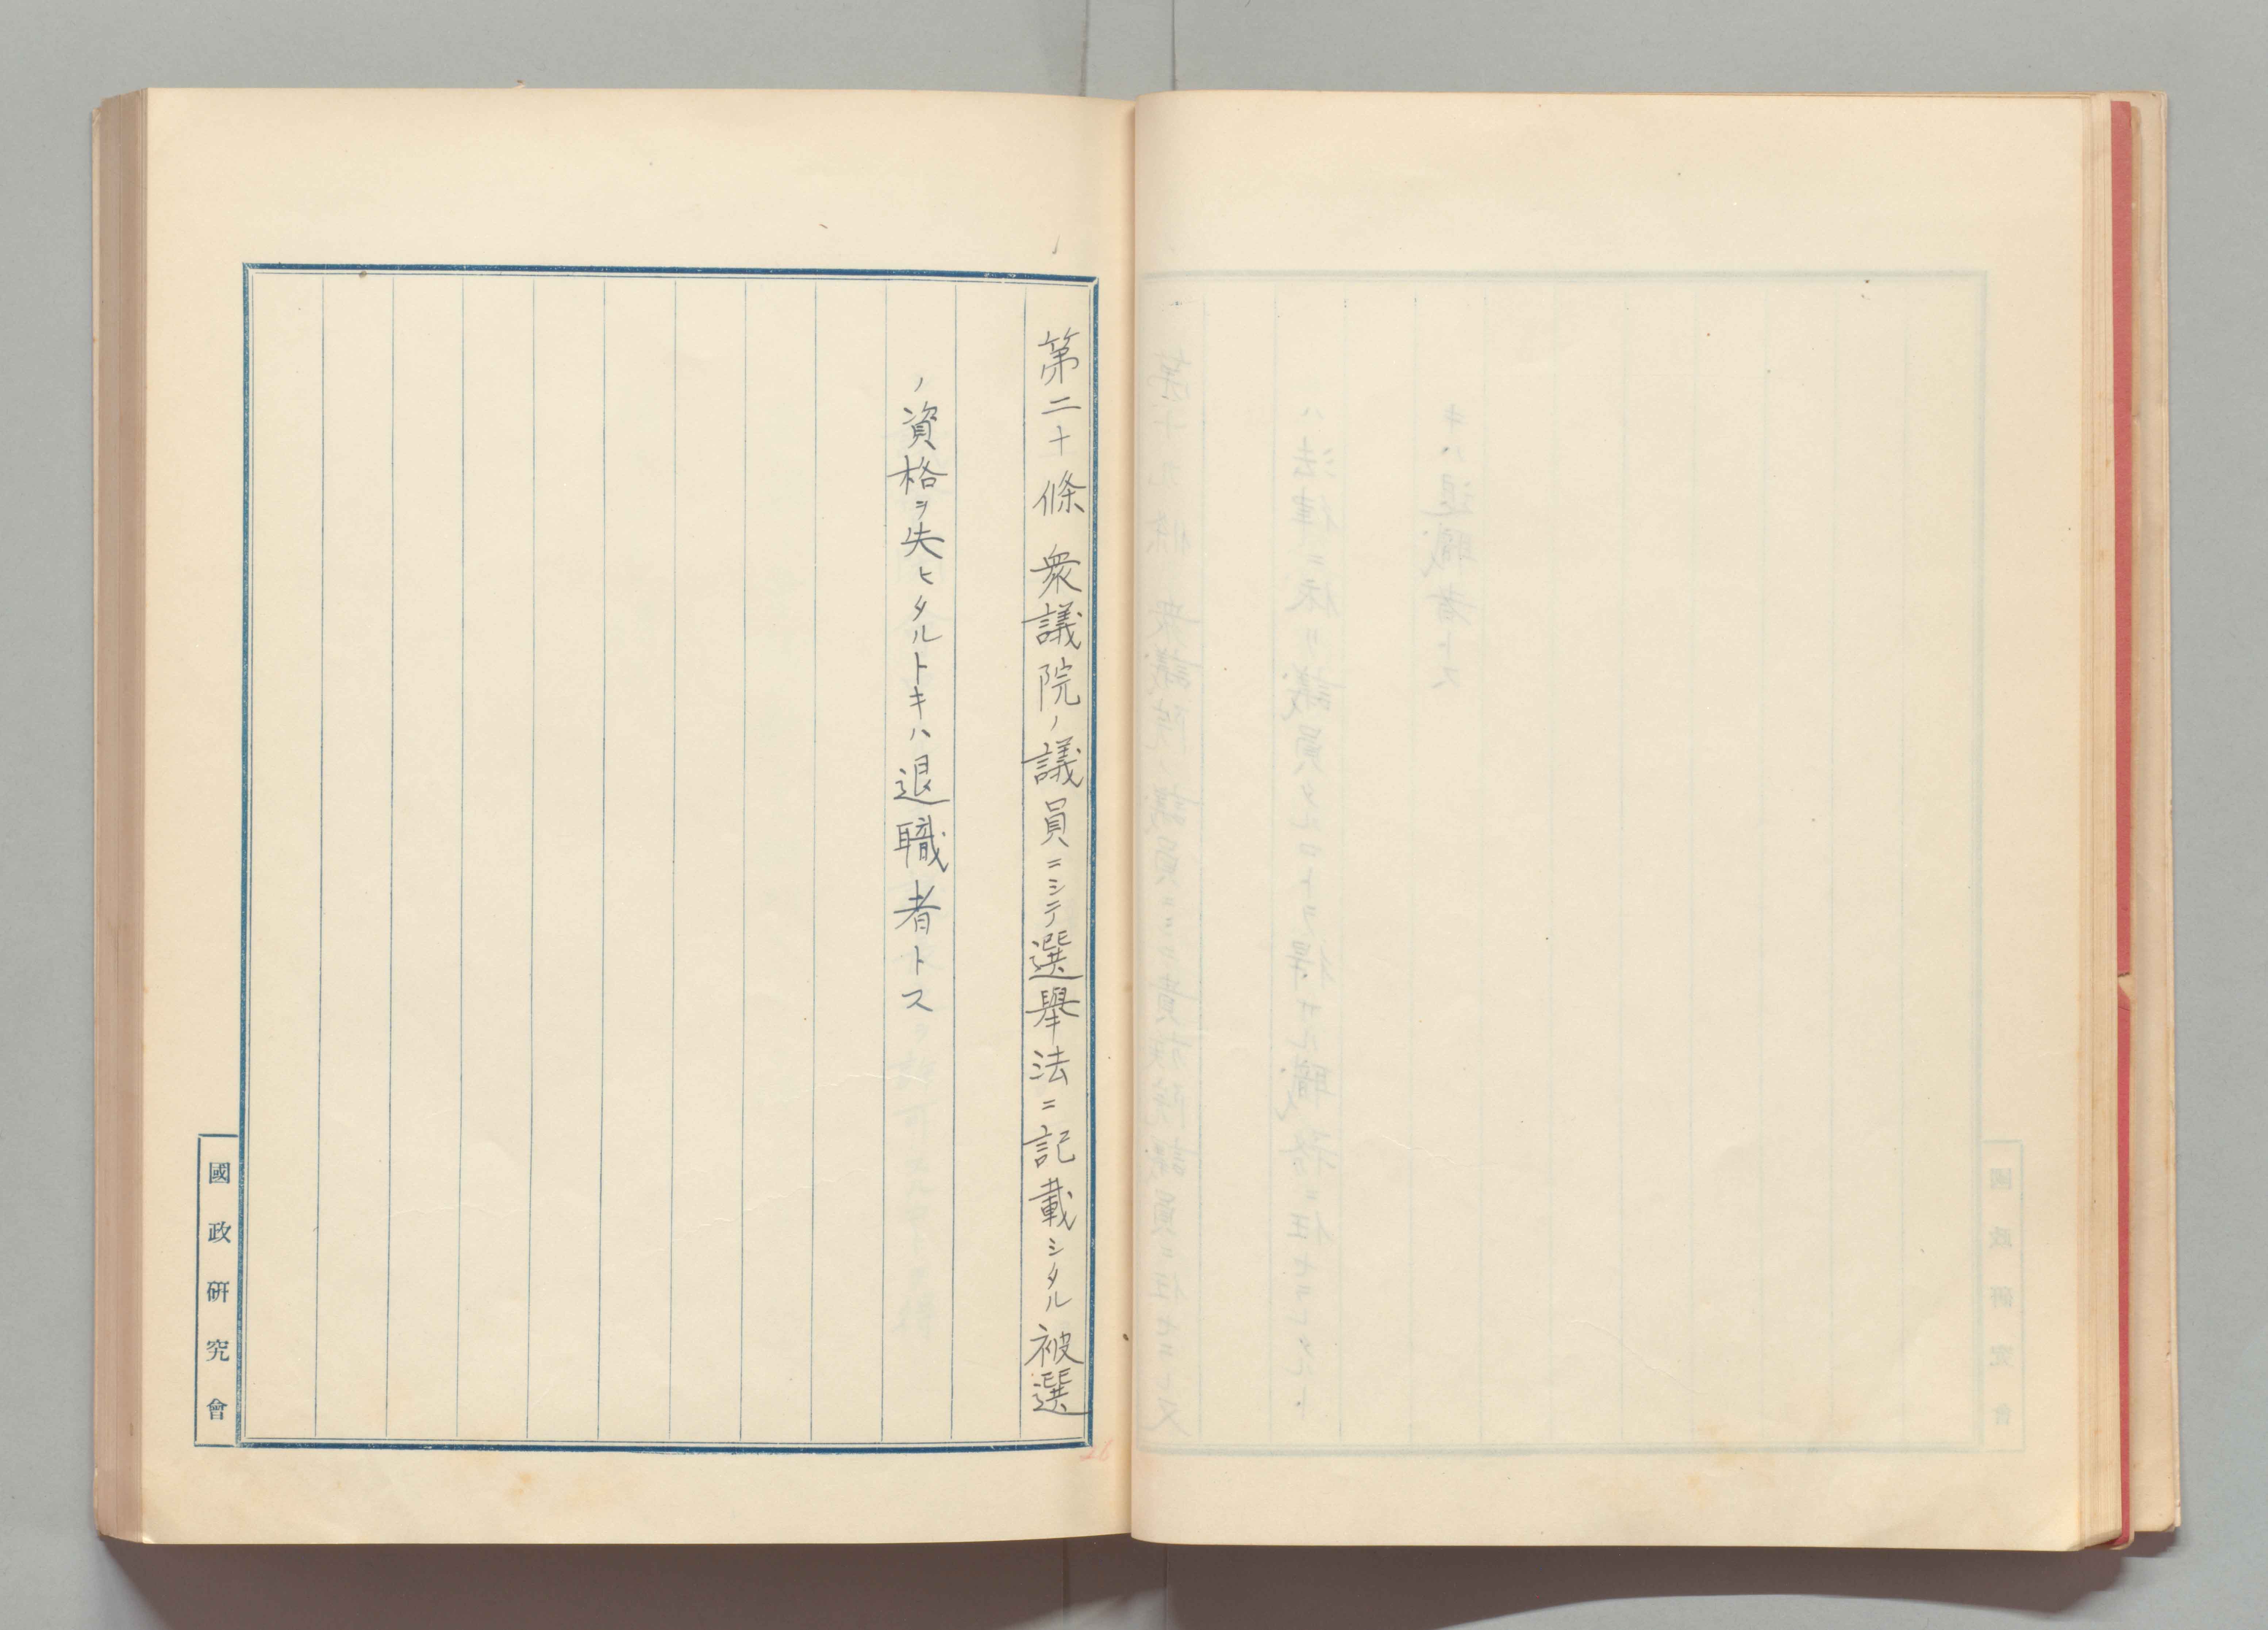 第二十條 衆議院ノ議員ニシテ選擧法ニ記載シタル被選
ノ資格ヲ失ヒタルトキハ退職者トス
國政硏究會
28